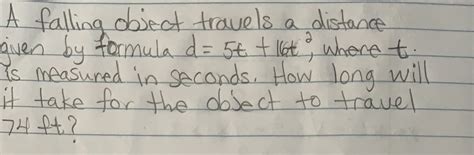 A falling object travels a distance
given by formula d = 5t + 16t², where t.
is measured in seconds. How long will
it take for the object to travel
74 ft?